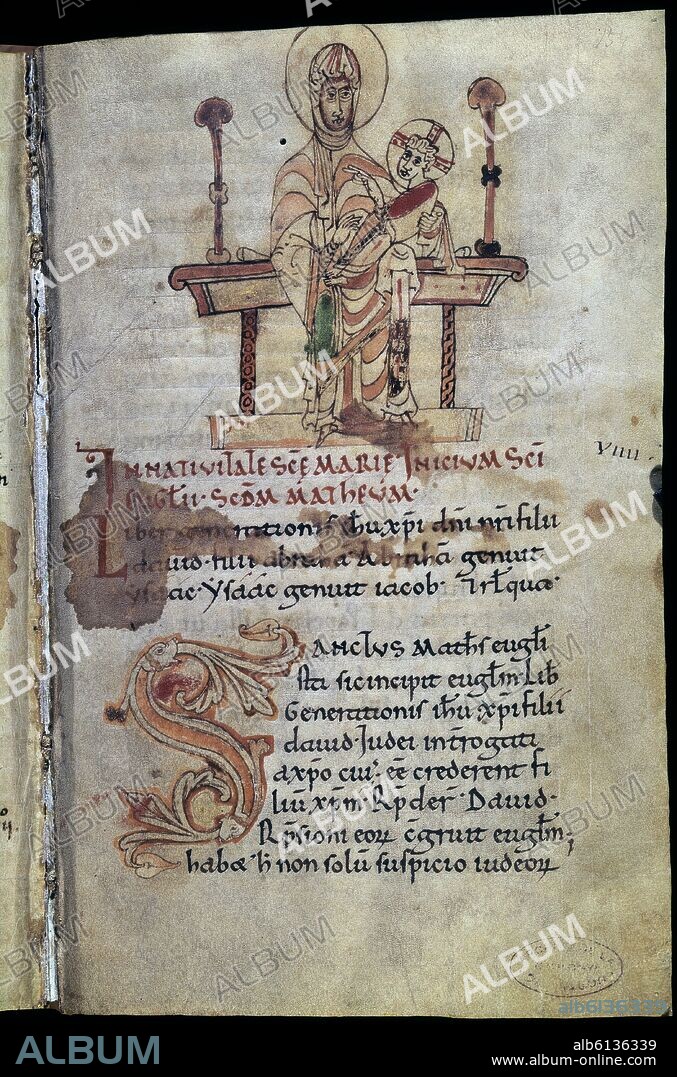 IN NATIVITATE SCĒ MARIE · INICIVM SCI
EVGLII · SCDM MATHEVM ·
VIIII ·
Liber generationis ihu xpi dni nri filii
dauid · filii abraham Abraham genuit
ysaac · Ysaac genuit iacob · Et rlqua ·
SANCTUS Maths eugli
sta sic incipit euglm · Lib
Generationis ihu xpi filii
dauid Iudei introgati
a xpo cui' ee crederent fi
liu xpm · Rpder · Dauid ·
Rpsioni eor cgruit euglm ;
habæ h non solu suspicio iudeor
ALBUM
alb6136339
www.album-online.com